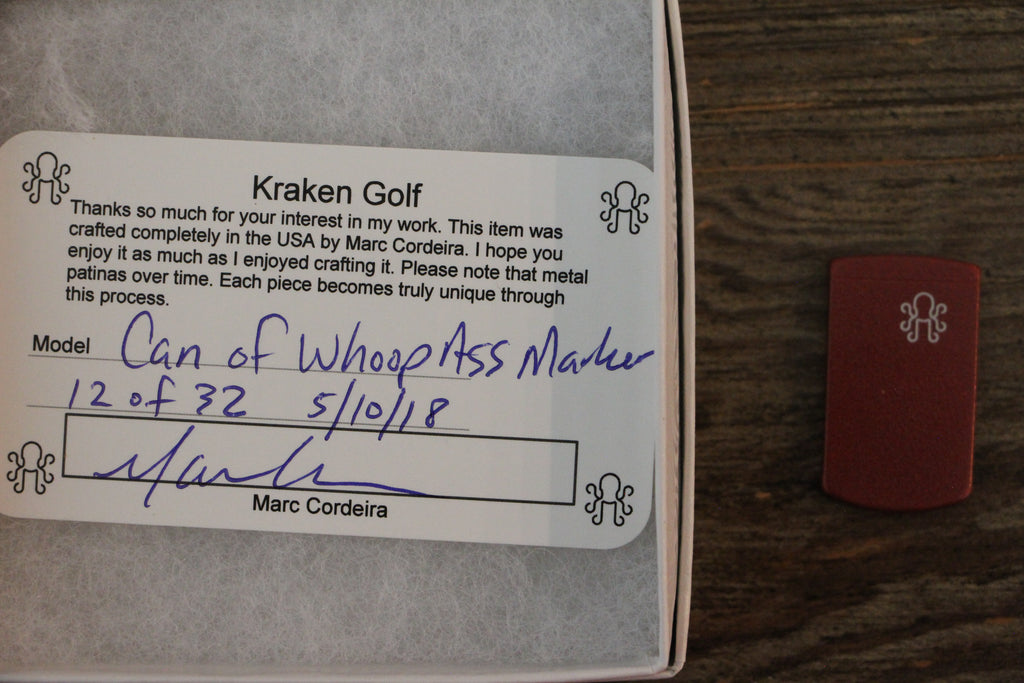 Kraken Golf
Thanks so much for your interest in my work. This item was
crafted completely in the USA by Marc Cordeira. I hope you
enjoy it as much as I enjoyed crafting it. Please note that metal
patinas over time. Each piece becomes truly unique through
this process.
Model Can of Whoop Ass Marker
12 of 32 5/10/18
Marc Cordeira